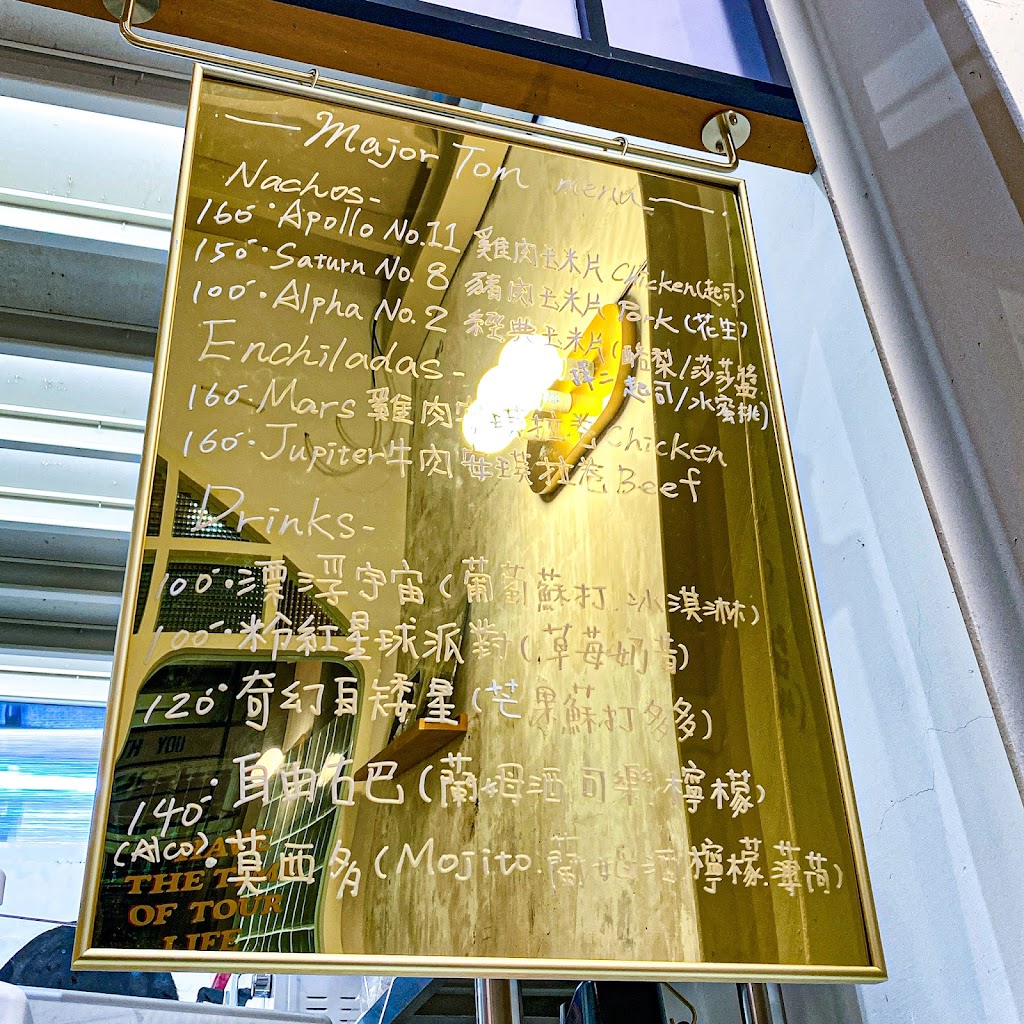 Major Tom menu
Nachos-
160·Apollo No.11 雞肉玉米片 Chicken(起司)
150·Saturn No.8 豬肉玉米片 Pork(花生)
100·Alpha No.2 經典玉米片(酪梨/莎莎醬
擇二 起司/水蜜桃)
Enchiladas-
160·Mars 雞肉安琪拉卷 Chicken
160·Jupiter牛肉安琪拉卷 Beef
Drinks-
100·漂浮宇宙(葡萄蘇打.冰淇淋)
100·粉紅星球派對(草莓奶昔)
120·奇幻白矮星(芒果蘇打多多)
140·自由古巴(蘭姆酒.可樂.檸檬)
(Alco)·莫西多(Mojito.蘭姆酒.檸檬.薄荷)
TH YOU
THE TIM
OF YOUR
LIFE